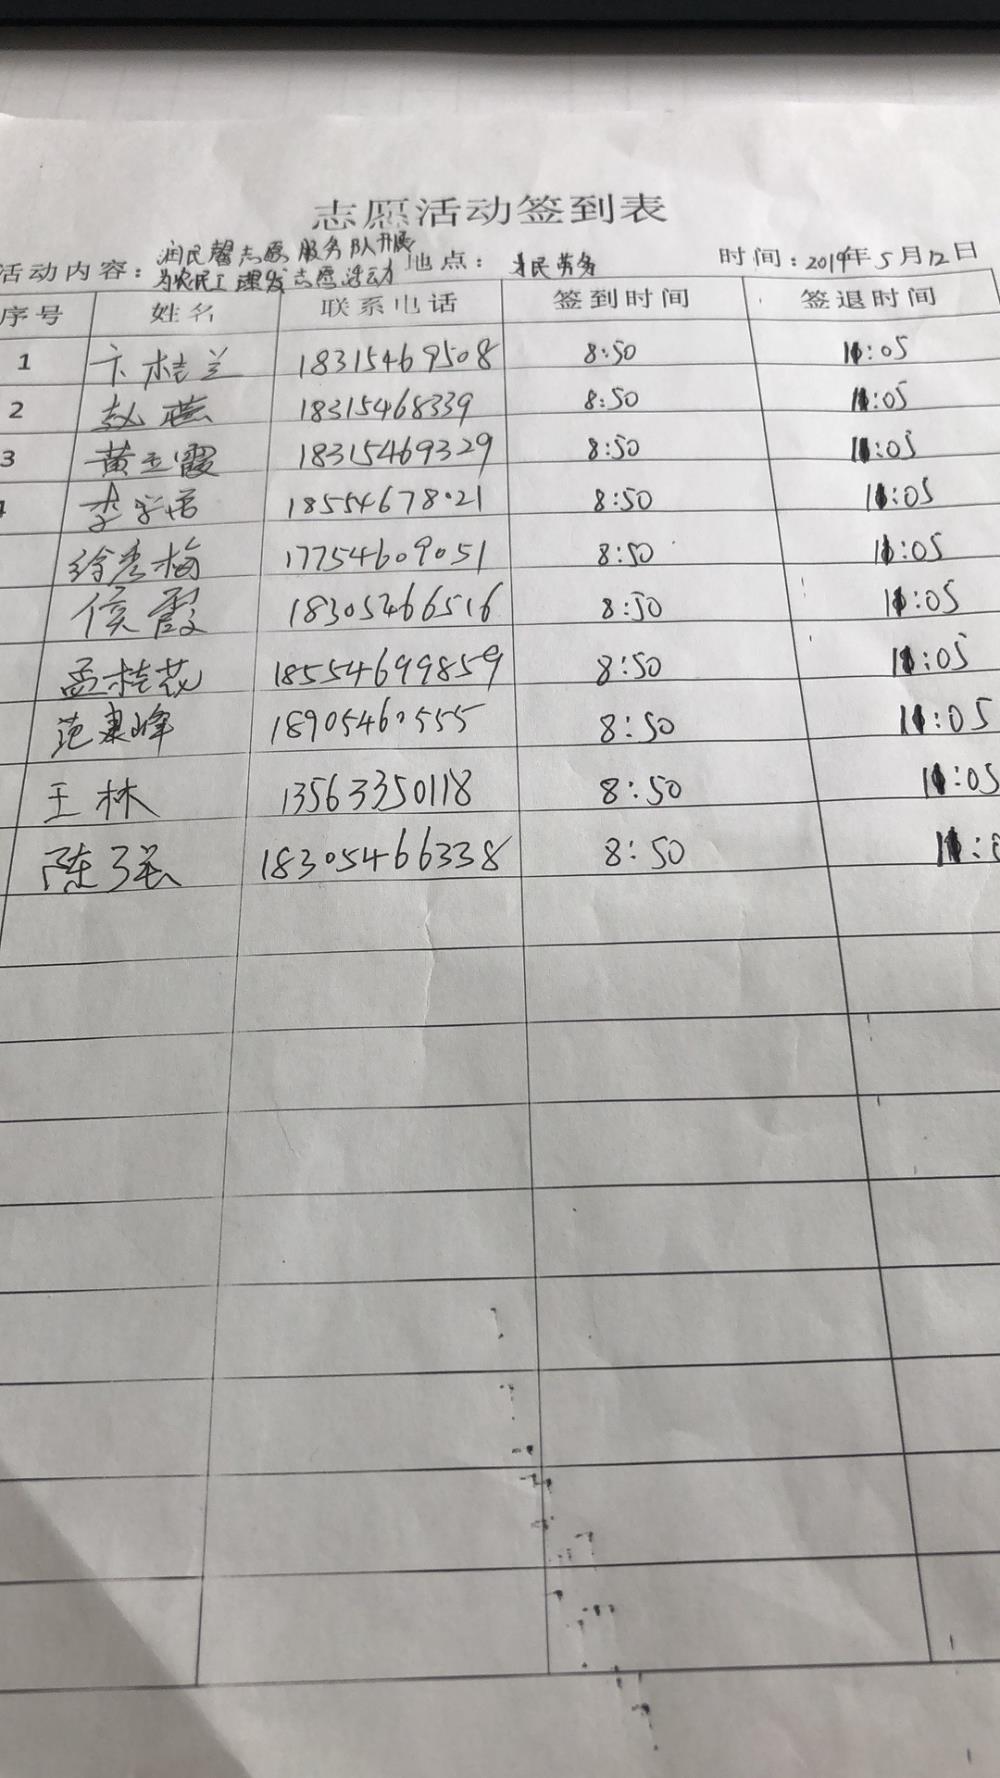 志愿活动签到表
润民馨志愿服务队开展
活动内容：为农民工理发志愿活动 地点：惠民劳务 时间：2019年5月12日
序号 姓名 联系电话 签到时间 签退时间
1 卞桂兰 18315469508 8:50 11:05
2 赵燕 18315468339 8:50 11:05
3 黄玉霞 18315469329 8:50 11:05
李学店 18554678021 8:50 11:05
徐秀梅 17754609051 8:50 11:05
侯霞 18305466516 8:50 11:05
孟桂花 18554699859 8:50 11:05
范東峰 18905460555 8:50 11:05
王林 13563350118 8:50 11:05
陈 18305466338 8:50 11:0